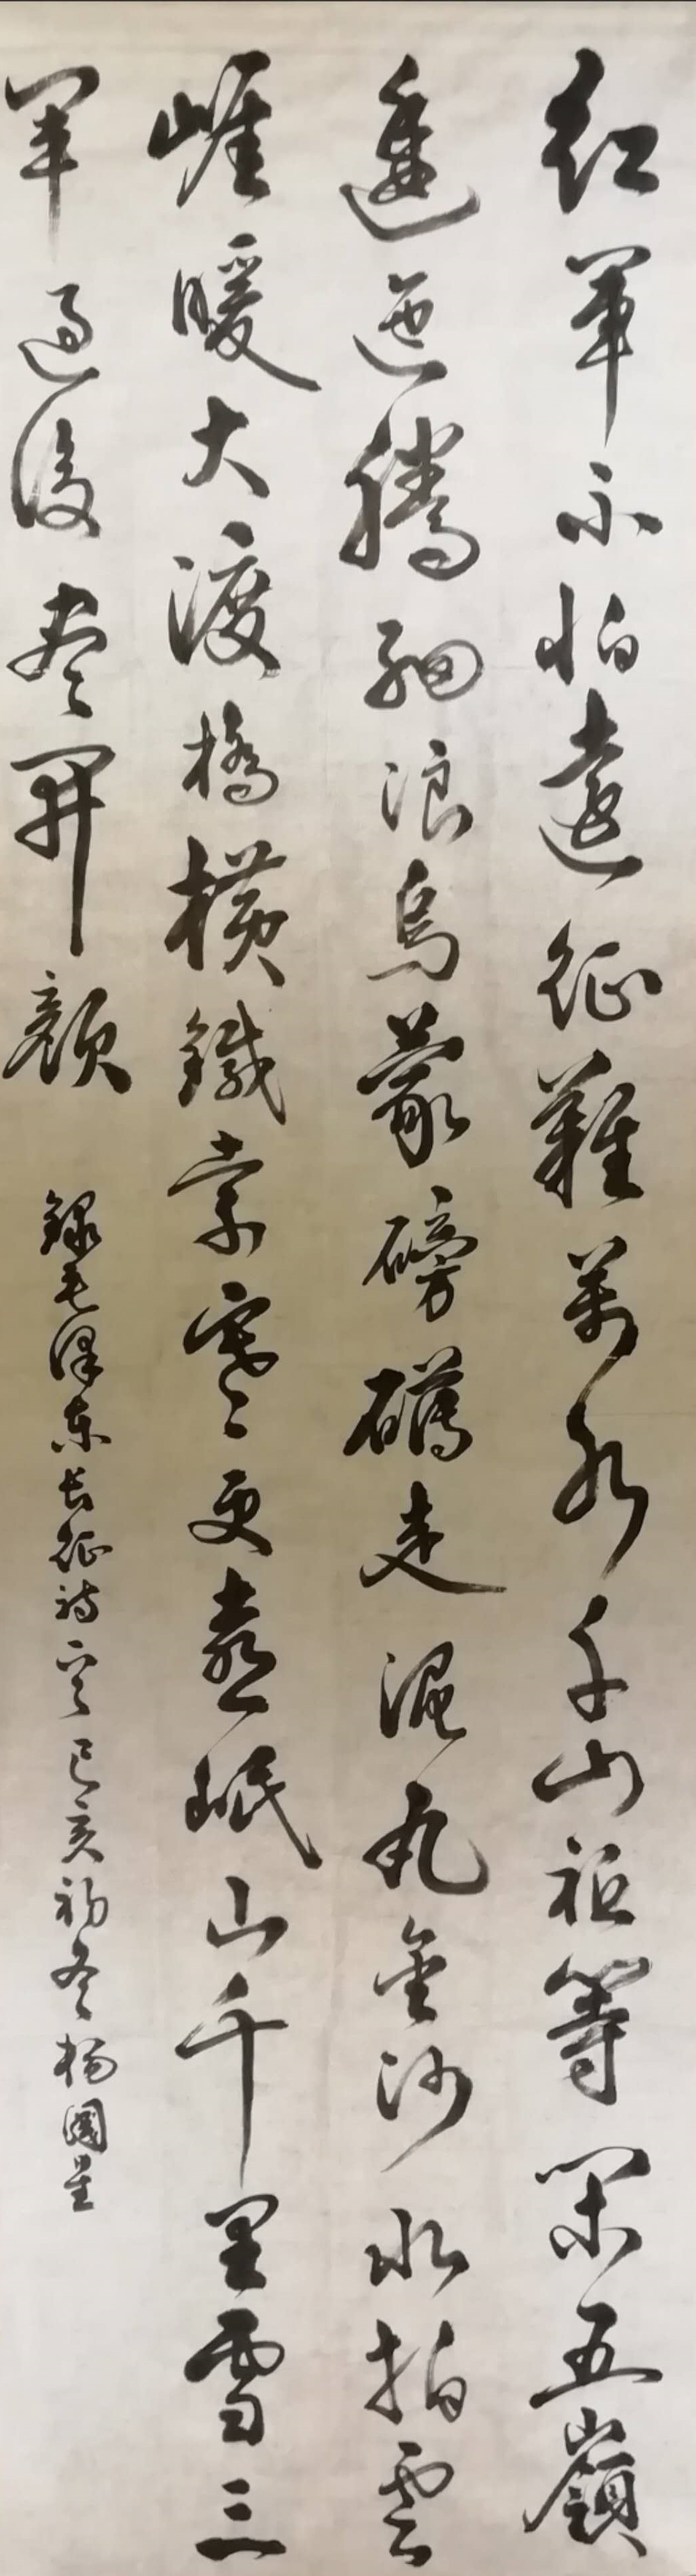 红軍不怕遠征難萬水千山祗等閑五嶺
逶迤騰細浪烏蒙磅礴走泥丸金沙水拍雲
崖暖大渡橋橫鐵索寒更喜岷山千里雪三
軍過後盡開顔
錄毛澤东长征诗一首己亥初冬楊國呈